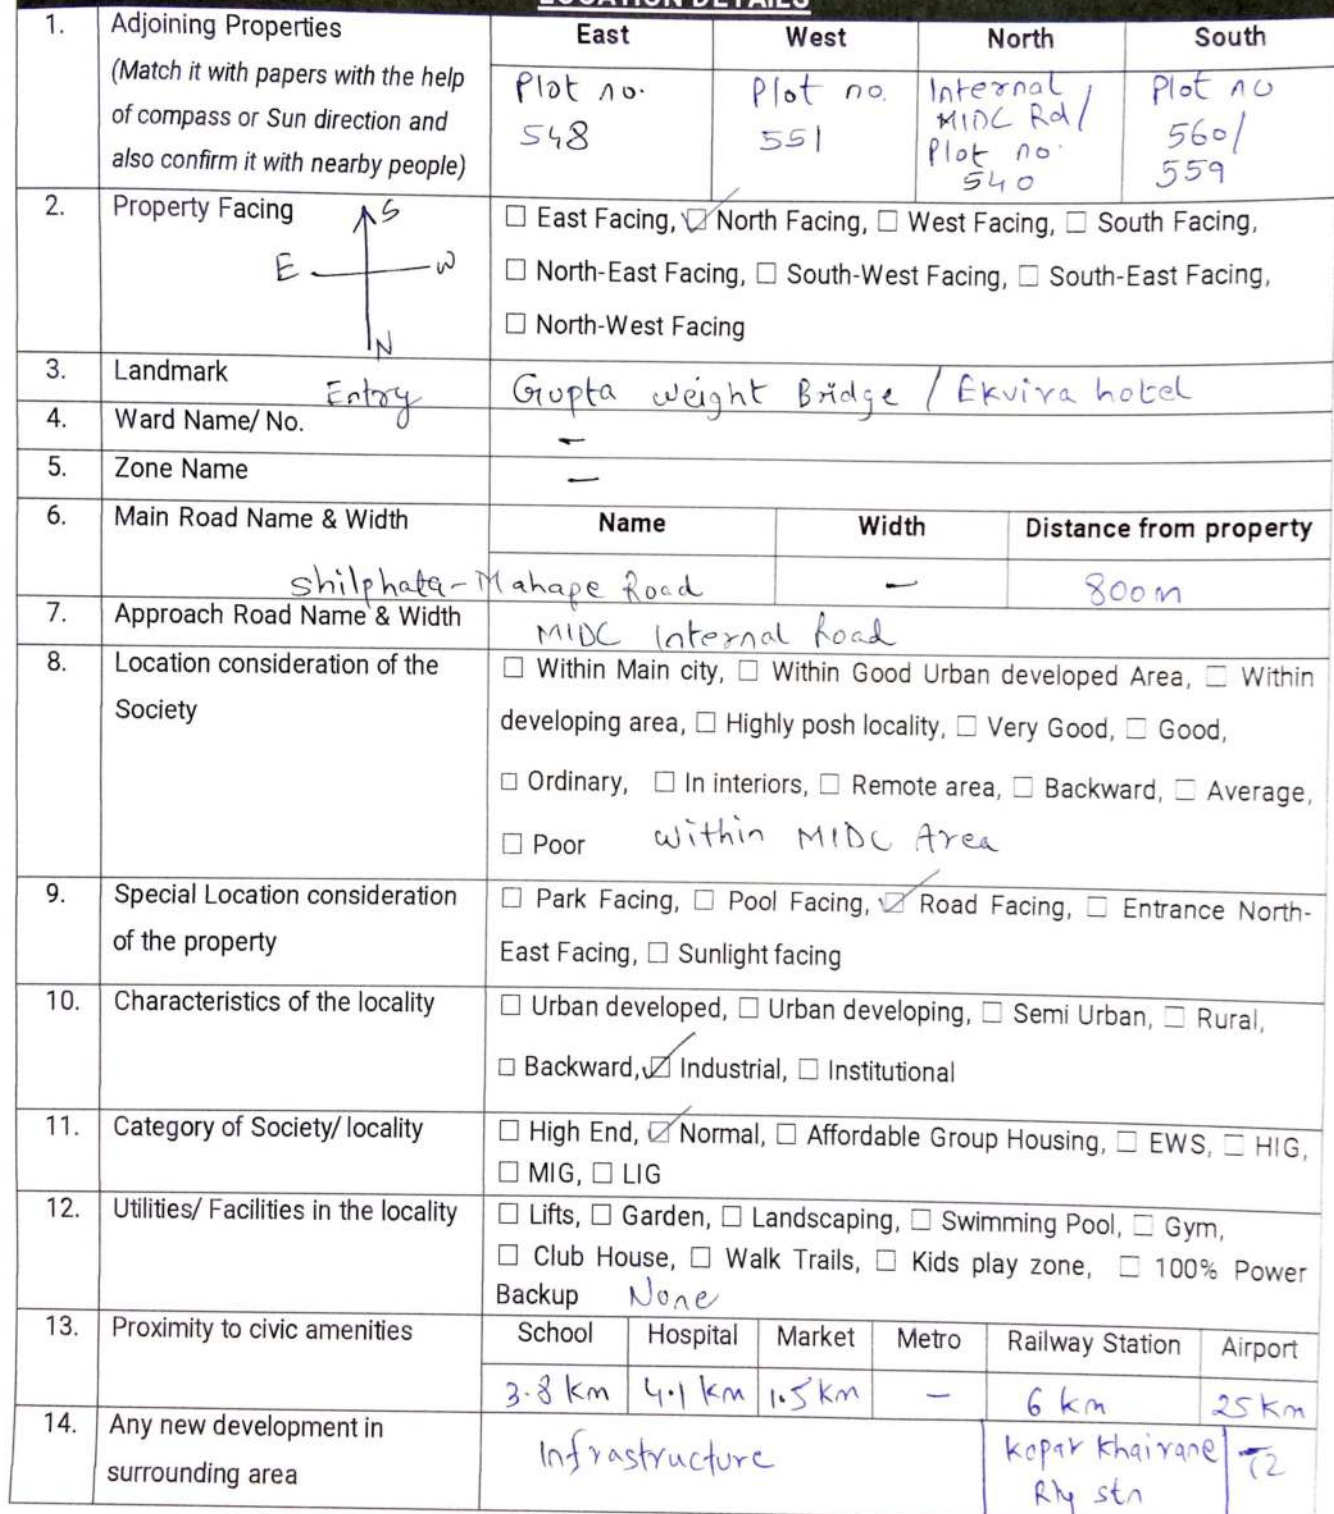 LOCATION DETAILS
1. Adjoining Properties East West North South
(Match it with papers with the help of compass or Sun direction and also confirm it with nearby people)
Plot no. 548
Plot no. 551
Internal MIDC Rd/ Plot no. 540
Plot no 560/ 559
2. Property Facing
S
E W
N
☐ East Facing, ☑ North Facing, ☐ West Facing, ☐ South Facing,
☐ North-East Facing, ☐ South-West Facing, ☐ South-East Facing,
☐ North-West Facing
3. Landmark Entry Gupta weight Bridge / Ekvira hotel
4. Ward Name/ No. –
5. Zone Name –
6. Main Road Name & Width Name Width Distance from property
Shilphata-Mahape Road – 800m
7. Approach Road Name & Width MIDC Internal Road
8. Location consideration of the Society
☐ Within Main city, ☐ Within Good Urban developed Area, ☐ Within
developing area, ☐ Highly posh locality, ☐ Very Good, ☐ Good,
☐ Ordinary, ☐ In interiors, ☐ Remote area, ☐ Backward, ☐ Average,
☐ Poor within MIDC Area
9. Special Location consideration of the property
☐ Park Facing, ☐ Pool Facing, ☑ Road Facing, ☐ Entrance North-
East Facing, ☐ Sunlight facing
10. Characteristics of the locality
☐ Urban developed, ☐ Urban developing, ☐ Semi Urban, ☐ Rural,
☐ Backward, ☑ Industrial, ☐ Institutional
11. Category of Society/ locality
☐ High End, ☑ Normal, ☐ Affordable Group Housing, ☐ EWS, ☐ HIG,
☐ MIG, ☐ LIG
12. Utilities/ Facilities in the locality
☐ Lifts, ☐ Garden, ☐ Landscaping, ☐ Swimming Pool, ☐ Gym,
☐ Club House, ☐ Walk Trails, ☐ Kids play zone, ☐ 100% Power
Backup None
13. Proximity to civic amenities School Hospital Market Metro Railway Station Airport
3.8 km 4.1 km 1.5 km – 6 km 25 km
14. Any new development in surrounding area
Infrastructure
Kopar Khairane Rly stn
T2